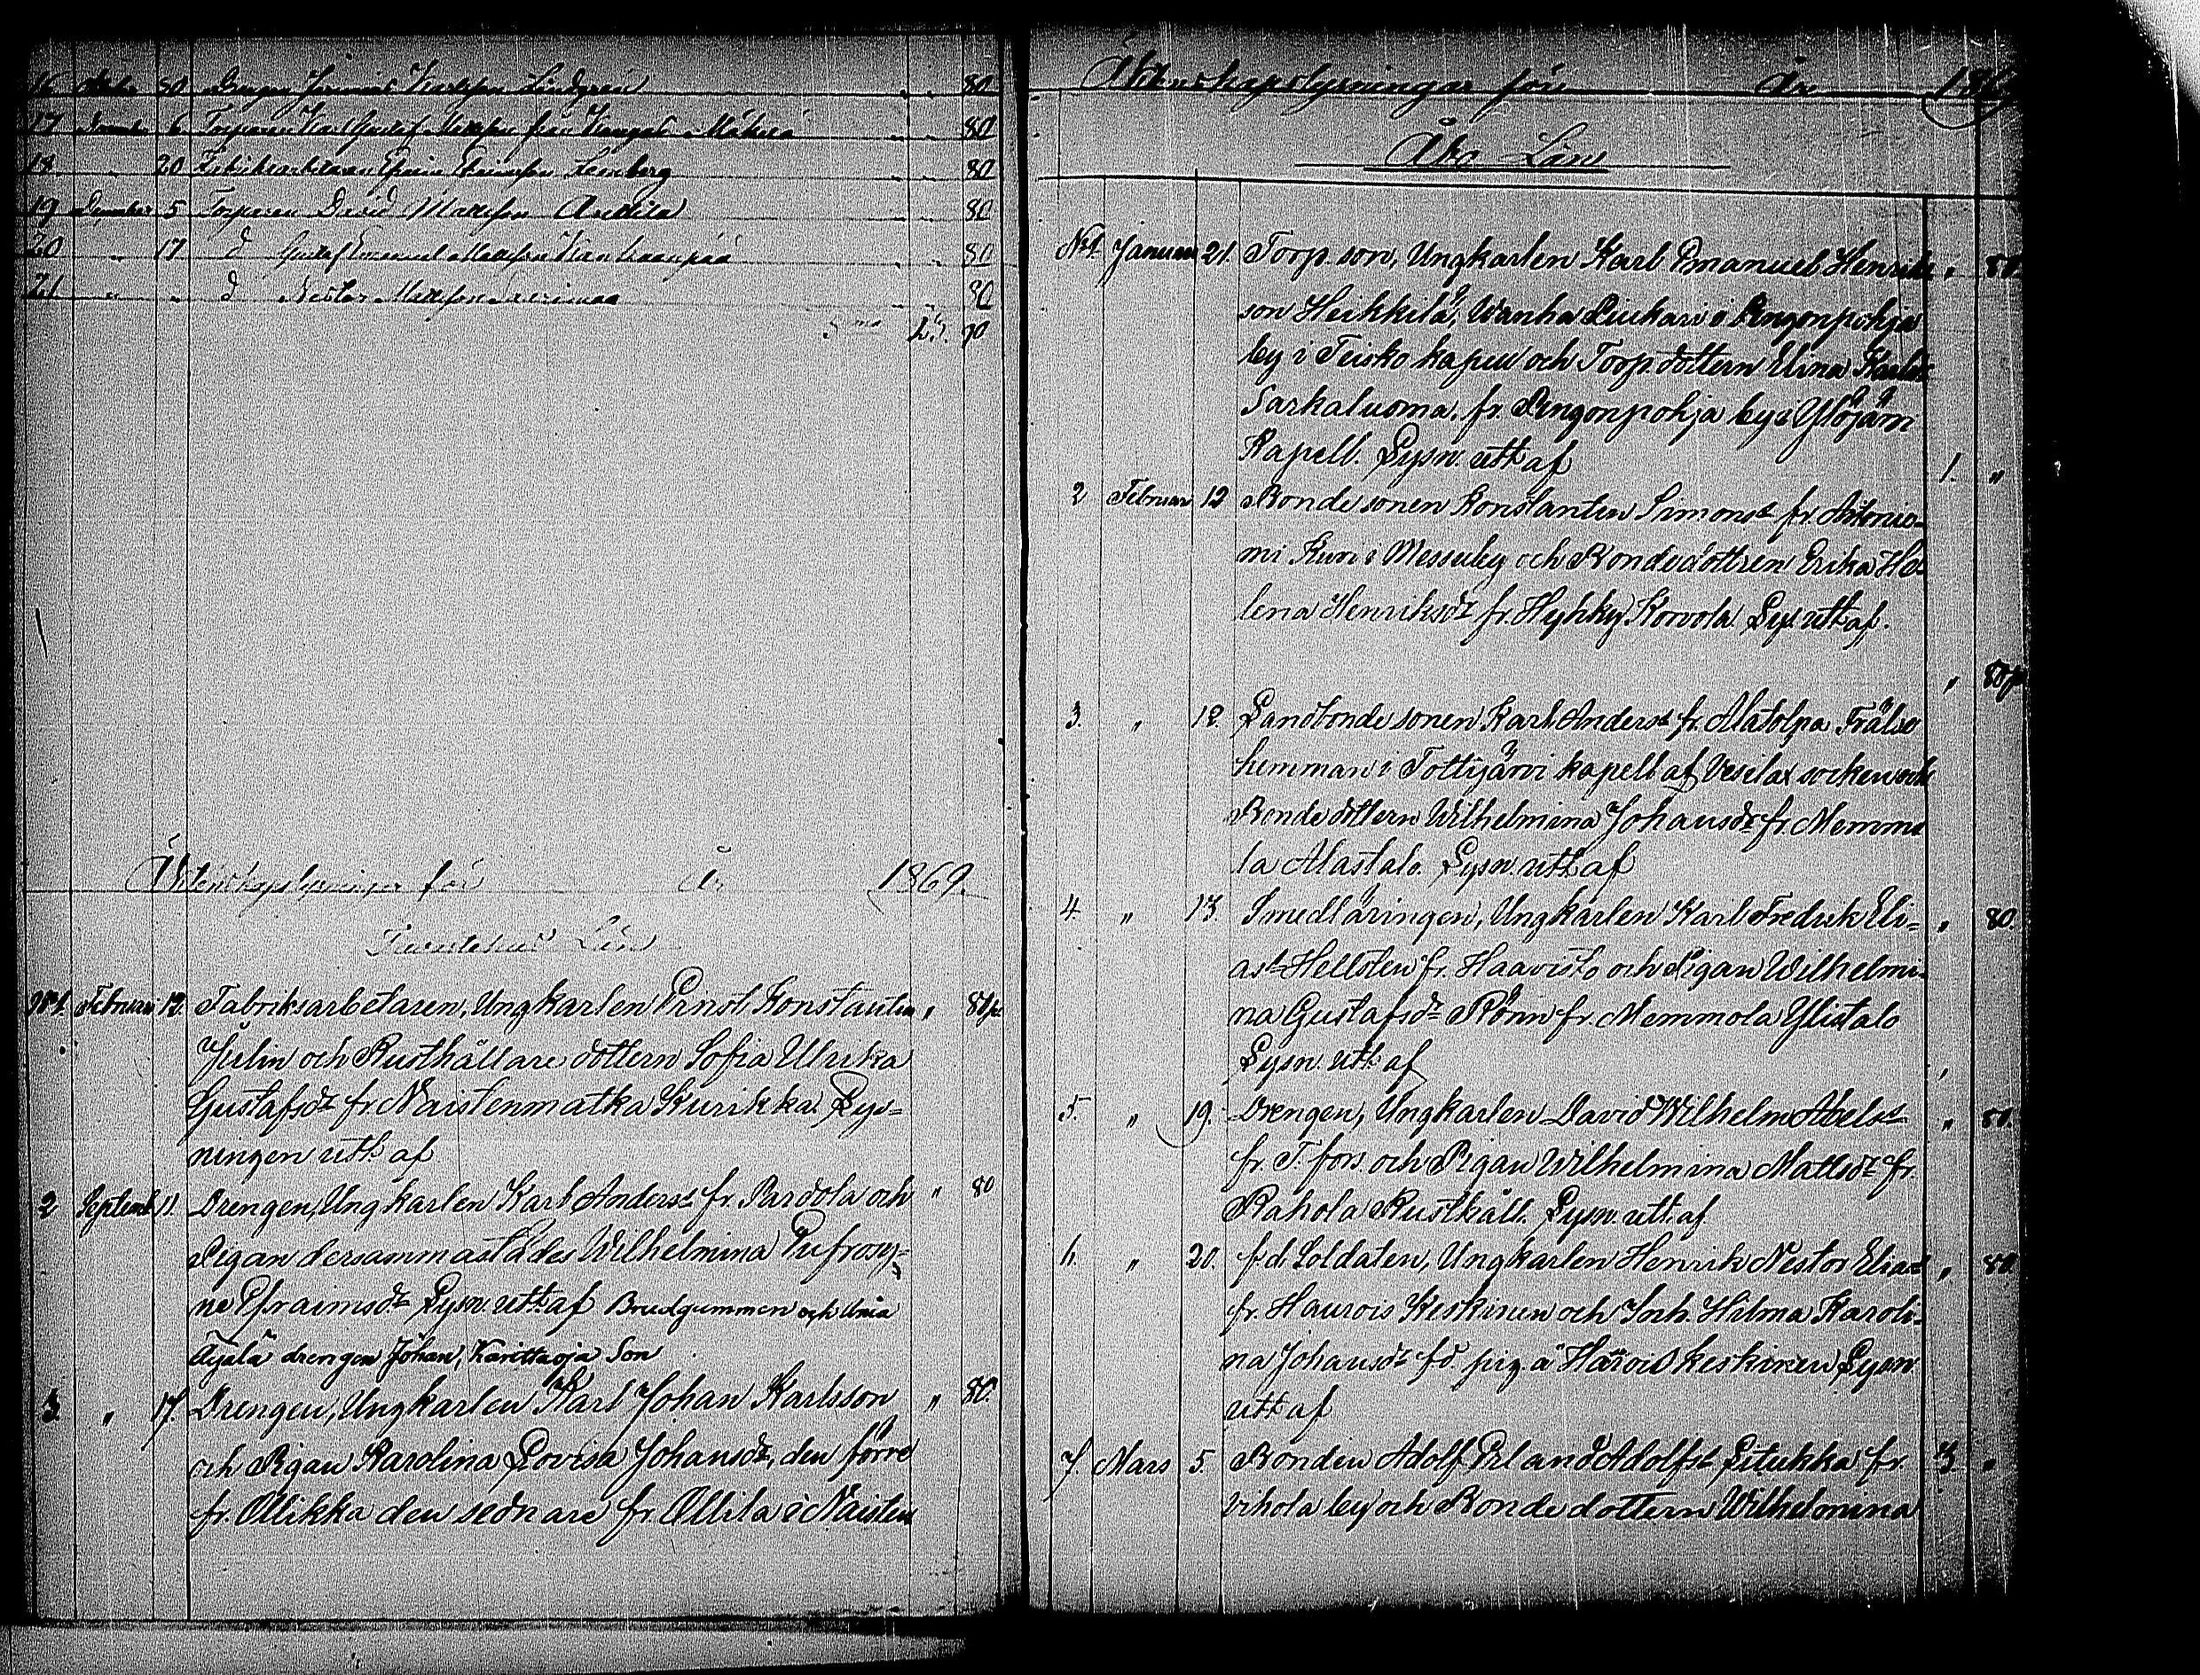 16 Octobr 30 Drengen Jeremias Karlsson Lindgrén " " 80
17 Decembr 6 Torparen Karl Gustaf Mattsson från Kangas Mäkelä " " 80
18 " 20 Fabriksarbetaren Efraim Efraimsson Lemberg " " 80
19 December 5 Torparen David Mattsson Anttila " " 80
20 " 17 d Gustaf Emanuel Mattsson " " 80
21 " " d Nestor Mattsson " " 80
Äktenskapslysningar för År 1869.
Tavastehus Län
No 1. Februari 12. Fabriksarbetaren, Ungkarlen Ernst Konstantin " 80 p
Julin och Rusthållare dottern Sofia Ulrika
Gustafsdr fr Naistenmatka Kurikka. Lys=
ningen utt. af
2 Septemb 11. Drengen, Ungkarlen Karl Anderss fr. Pardola och " 80
Pigan dersammastädes Wilhelmina Eufrosy=
ne Efraimsdr Lysn. utt. af Brudgummen och
Äijälä drengen Johan, Karittaoja Son
3. " 17. Drengen, Ungkarlen Karl Johan Karlsson " 80.
och Pigan Karolina Lovisa Johansdr, den förre
fr. Ollikka den sednare fr. Ollila i Naisten
Äktenskapslysningar för År 1869
Åbo Län
No 1. Januari 21. Torp. son, Ungkarlen Karl Emanuel Henriks " 80.
son Heikkilä, Wanha Liukari i Engonpohja
by i Teisko kapell och Torp. dottern Elina Karlsd
Sarkaluoma, fr. Pengonpohja by i Ylöjärvi
Kapell. Lysn. utt. af 1. "
2 Februari 12 Bonde sonen Konstantin Simonss fr. Antonie-
mi Kuri i Messuby och Bondedottren Erika He-
lena Henriksdr fr. Hyhky Korvola Lys. utt. af.
" 80 p
3. " 12. Landbonde sonen Karl Anderss fr. Alatolpa Frälse
hemman i Tottijärvi kapell af Vesilax socken och
Bonde dottern Wilhelmina Johansdr fr Memmo
la Alastalo. Lysn. utt. af
4. " 13 Smedläringen, Ungkarlen Karl Fredrik Eli= " 80.
ass Hellsten fr. Haavisto och Pigan Wilhelmi-
na Gustafsdr Rönn fr. Memmola Ylistalo
Lysn. utt. af
5. " 19. Drengen, Ungkarlen David Wilhelm Abelss " 80.
fr. T. fors. och Pigan Wilhelmina Mattsdr fr.
Rahola Rusthåll. Lysn. utt. af
6. " 20. f.d. Soldaten, Ungkarlen Henrik Nestor Eliass " 80.
fr. Haurois Keskinen och Inh. Hilma Karoli-
na Johansdr fd. pig. a Harois keskinen Lysn
utt af
7. Mars 5. Bonden Adolf Erland Adolfss Litukka fr. 3. "
Vihola by och Bonde dottern Wilhelmina